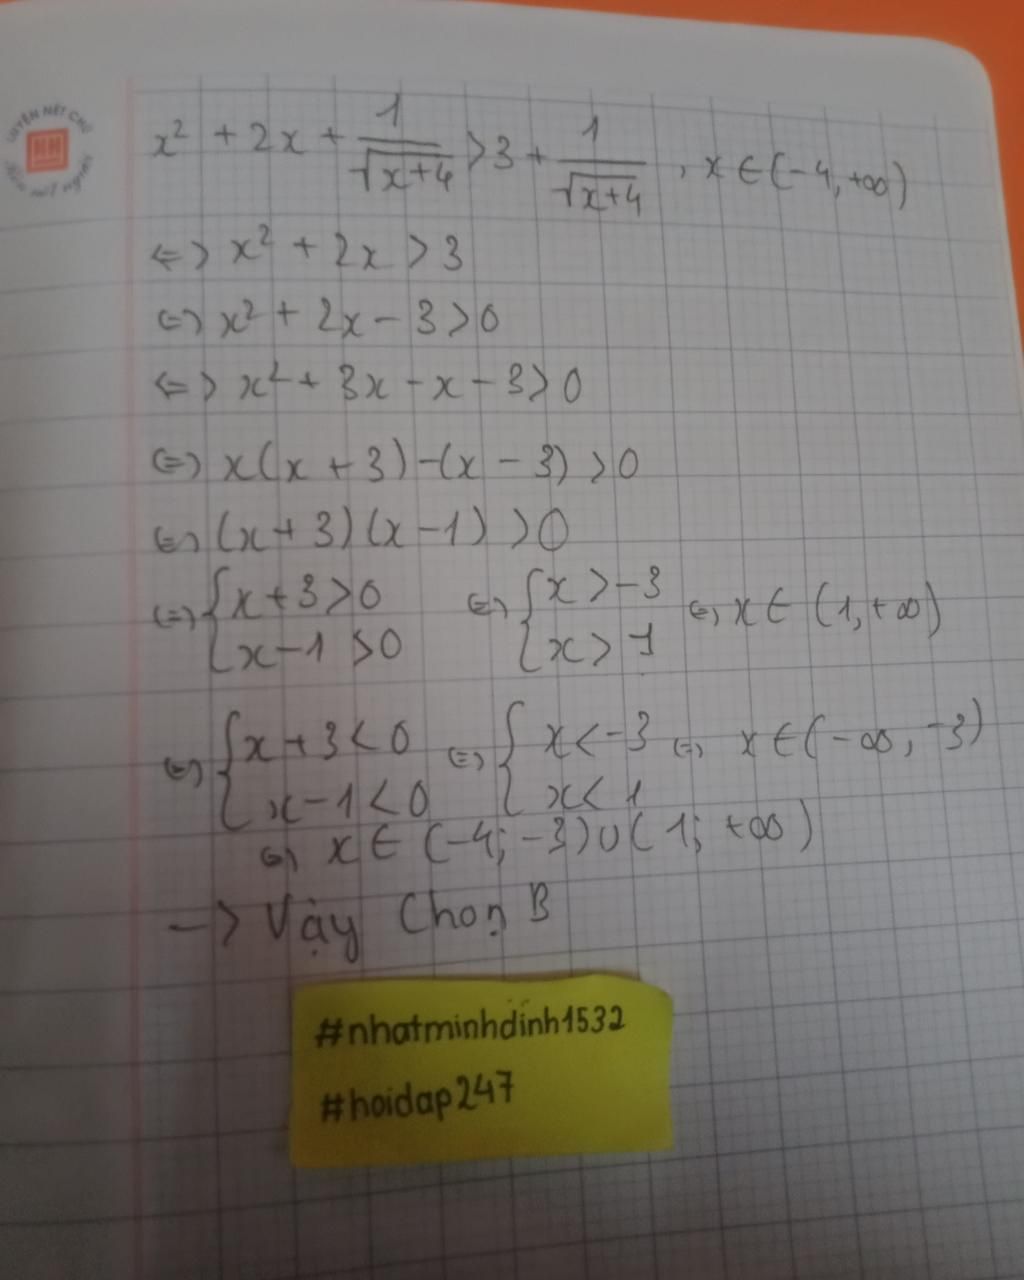 LUYỆN NÉT CHỮ
x² + 2x + 1/√(x+4) > 3 + 1/√(x+4) , x ∈ (-4, +∞)
<=> x² + 2x > 3
<=> x² + 2x - 3 > 0
<=> x² + 3x - x - 3 > 0
<=> x(x + 3) - (x - 3) > 0
<=> (x + 3)(x - 1) > 0
<=> { x + 3 > 0 ; x - 1 > 0 <=> { x > -3 ; x > 1 <=> x ∈ (1, +∞)
<=> { x + 3 < 0 ; x - 1 < 0 <=> { x < -3 ; x < 1 <=> x ∈ (-∞, -3)
<=> x ∈ (-4; -3) ∪ (1; +∞)
-> Vậy Chọn B
#nhatminhdinh1532
#hoidap247